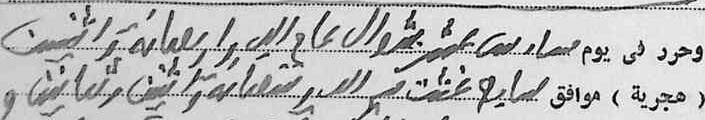 وحرر فى يوم سادس عشر شوال عام الف واربعمائة واثنين
( هجرية ) موافق سابع غشت سنة الف وتسعمائة واثنين وثمانين و